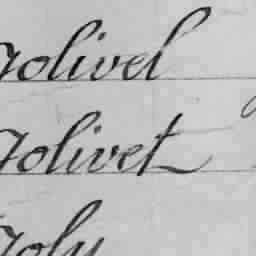 Jolivel
Jolivet
Joly